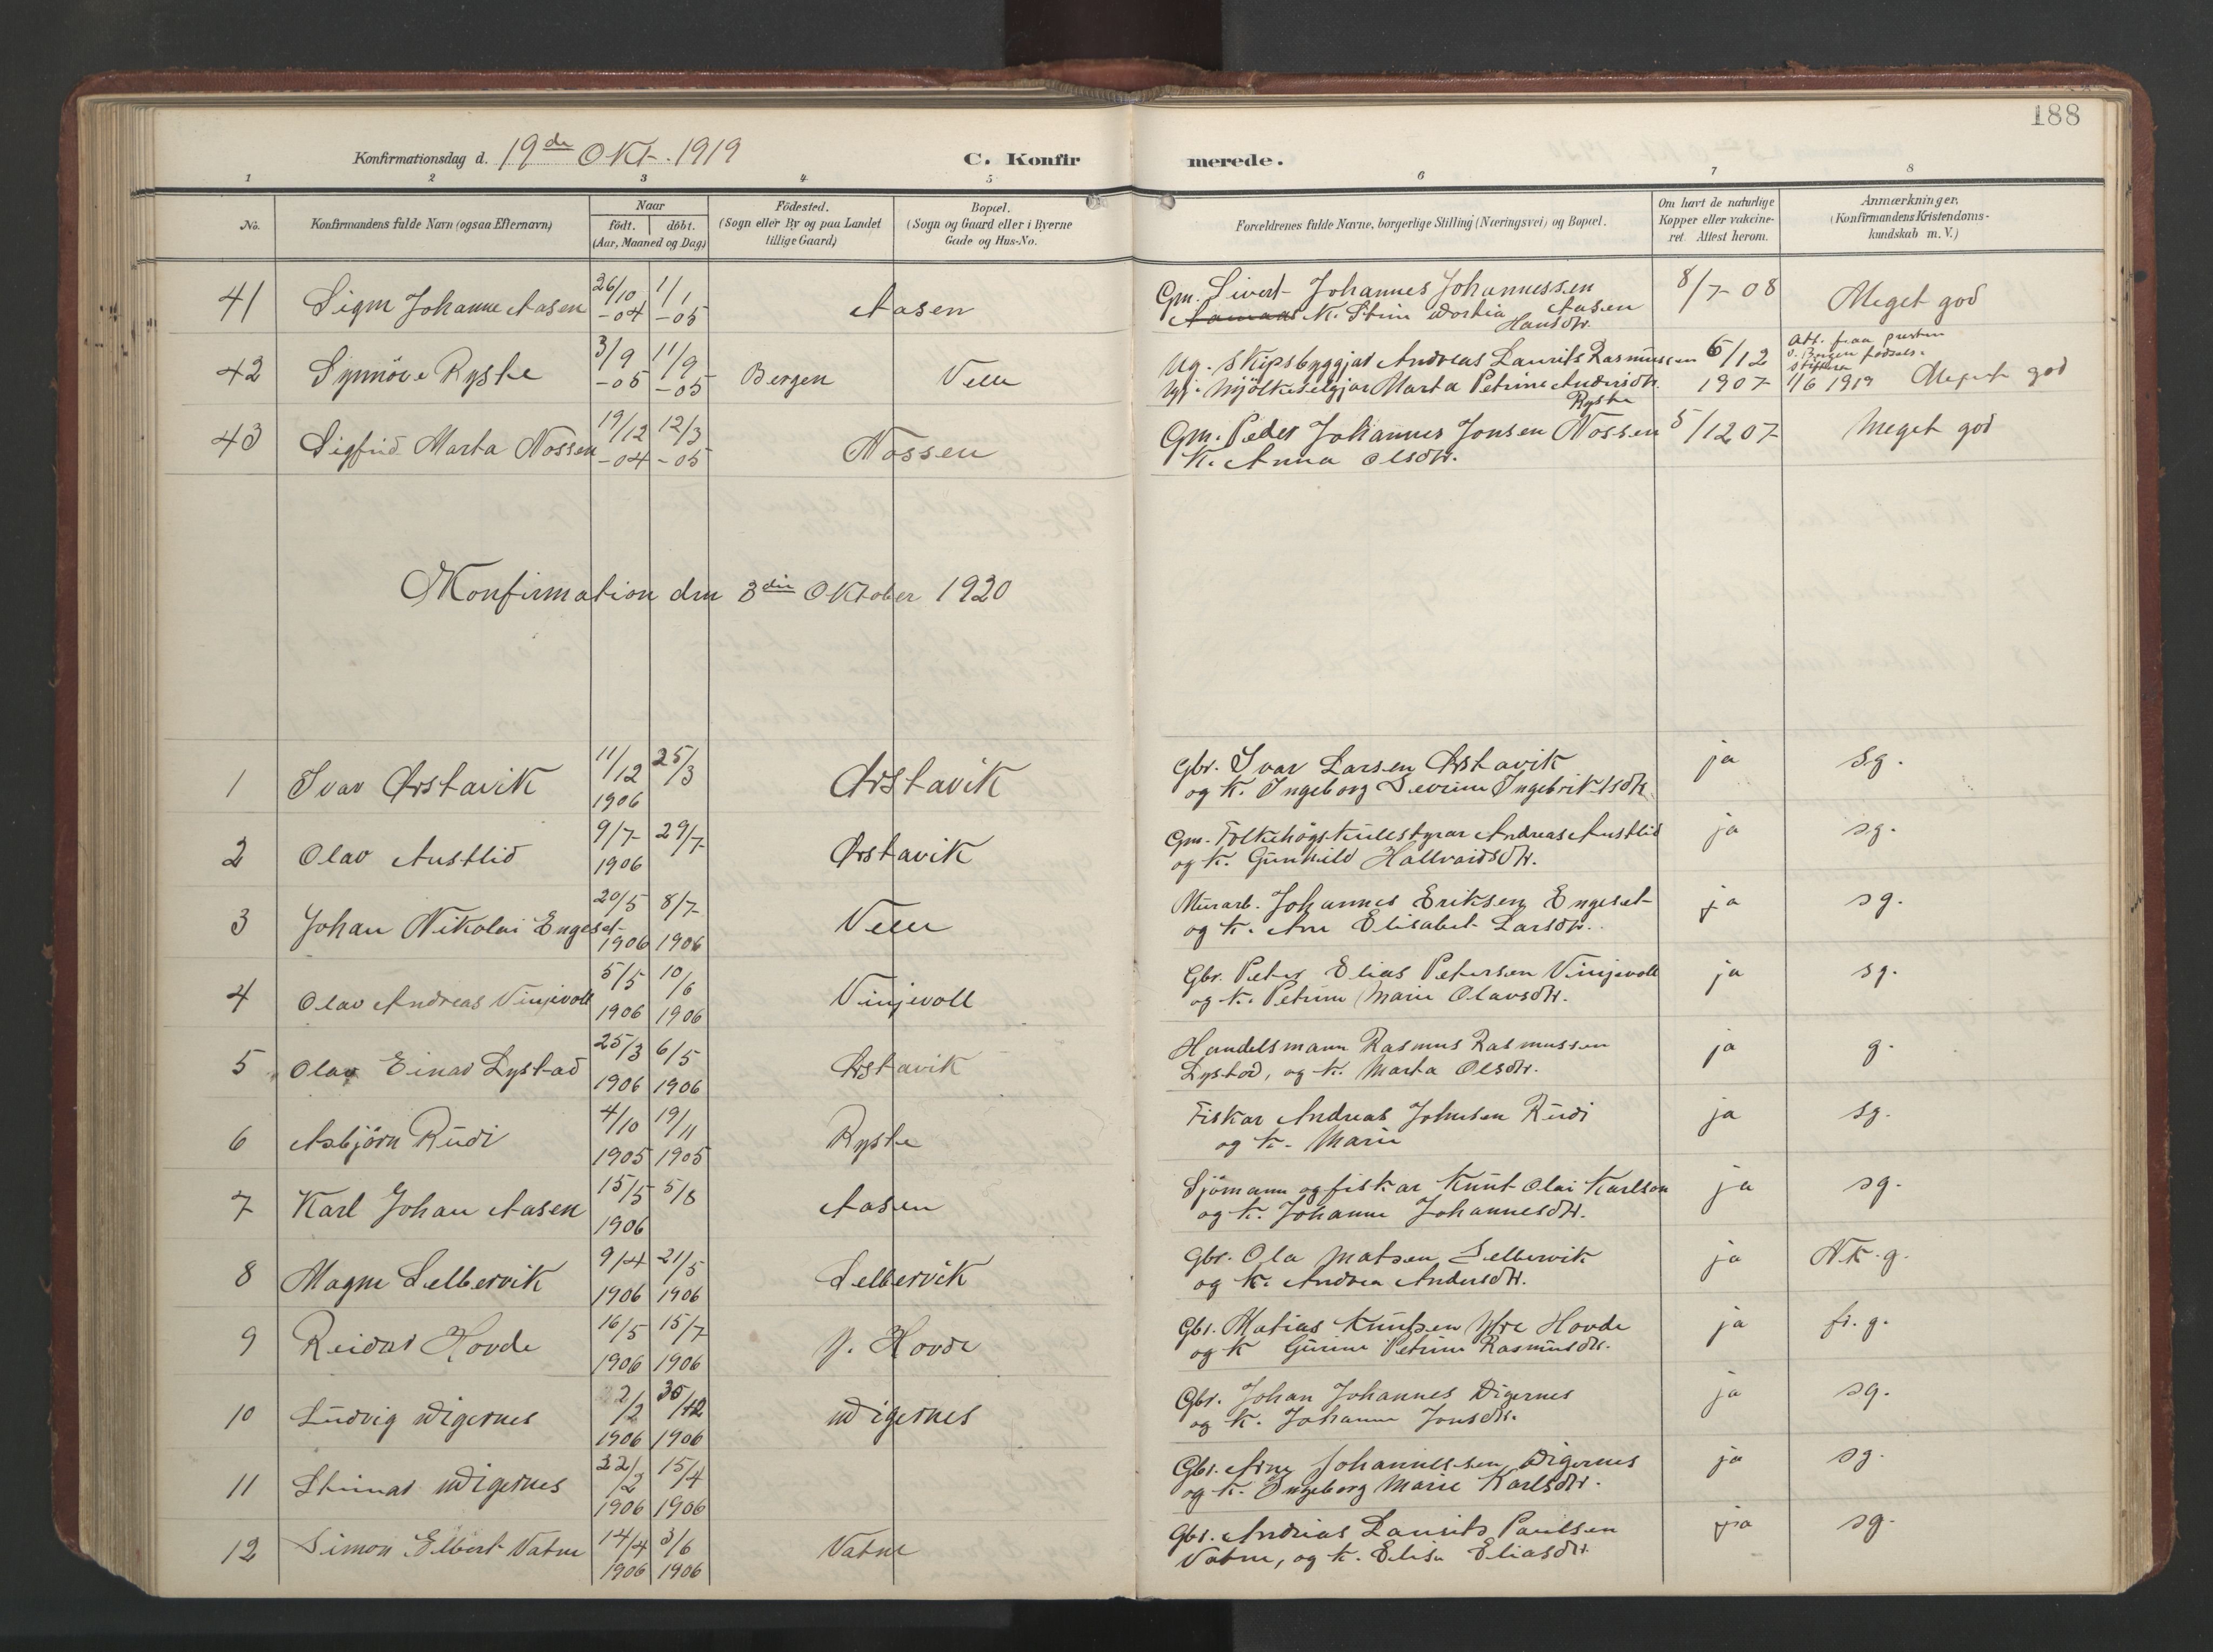 188
Konfirmationsdag d. 19de Okt. 1919
C. Konfirmerede.
1 2 3 4 5 6 7 8
No.
Konfirmandens fulde Navn (ogsaa Efternavn)
Naar
födt. döbt.
(Aar, Maaned og Dag)
Födested.
(Sogn eller By og paa Landet
tillige Gaard)
Bopæl.
(Sogn og Gaard eller i Byerne
Gade og Hus-No.
Forældrenes fulde Navne, borgerlige Stilling (Næringsvei) og Bopæl.
Om havt de naturlige
Kopper eller vakcine-
ret. Attest herom.
Anmærkninger,
(Konfirmandens Kristendoms-
kundskab m. V.)
41 Signe Johanne Aasen 26/10 -04 1/1 -05 Aasen Gm. Sivert Johannes Johannessen 8/7-08 Meget god
K. Stine Dortia Aasen
Hansdtr.
42 Synnöve Ryste 3/9 -05 11/9 -05 Bergen Velle Ug. Skipsbyggjar Andreas Laurits Rasmussen 6/12 1907 Att. fraa presten
v. Bergen födsels-
stiftelse
1/6 1919 Meget god
Marta Petrine Andersdtr.
Ryste
43 Sigfrid Marta Nossen 19/12 -04 12/3 -05 Nossen Gm. Peder Johannes Jonsen Nossen 5/12 07 Meget god
K. Anna Olsdtr.
Konfirmation den 3die Oktober 1920
1 Ivar Ørstavik 11/12 1906 25/3 Ørstavik Gbr. Ivar Larsen Ørstavik ja sg.
og k. Ingeborg Severine Ingebriktsdtr.
2 Olav Austlid 9/7 1906 29/7 Ørstavik Gm. Folkehögskulestyrar Andreas Austlid ja sg.
og k. Gunhild Hallvardsdtr.
3 Johan Nikolai Engeset 20/5 1906 8/7 1906 Velle Murarb. Johannes Eriksen Engeset ja sg.
og k. Ane Elisabet Larsdtr.
4 Olav Andreas Vinjevoll 5/5 1906 10/6 1906 Vinjevoll Gbr. Peter Elias Petersen Vinjevoll ja sg.
og k. Petrine Marie Olavsdtr.
5 Olav Einar Lystad 25/3 1906 6/5 1906 Ørstavik Handelsmann Rasmus Rasmussen ja g.
Lystad, og k. Marta Olsdtr.
6 Asbjörn Rudi 4/10 1905 19/11 1905 Ryste Fiskar Andreas Johnsen Rudi ja sg.
og k. Marie
7 Karl Johan Aasen 15/5 1906 5/8 Aasen Sjömann og fiskar Knut Olai Karlson ja sg.
og k. Johanne Johannesdtr.
8 Magne Selbervik 9/4 1906 21/5 1906 Selbervik Gbr. Ola Matsen Selbervik ja Nk. g.
og k. Andrea Andersdtr.
9 Reidar Hovde 16/5 1906 15/7 1906 Y. Hovde Gbr. Matias Knutsen Ytre Hovde ja fr. g.
og k Gurine Petrine Rasmusdtr.
10 Ludvig Digernes 2/2 1906 1906 Digernes Gbr. Johan Johannes Digernes ja sg.
og k. Johanne Jonsdtr.
11 Steinar Digernes 22/2 1906 15/4 1906 Gbr. Arne Johannessen Digernes ja sg.
og k. Ingeborg Marie Karlsdtr.
12 Simon Elbert Vatne 14/4 1906 3/6 1906 Vatne Gbr. Andreas Laurits Paulsen ja sg.
Vatne, og k. Elise Eliasdtr.